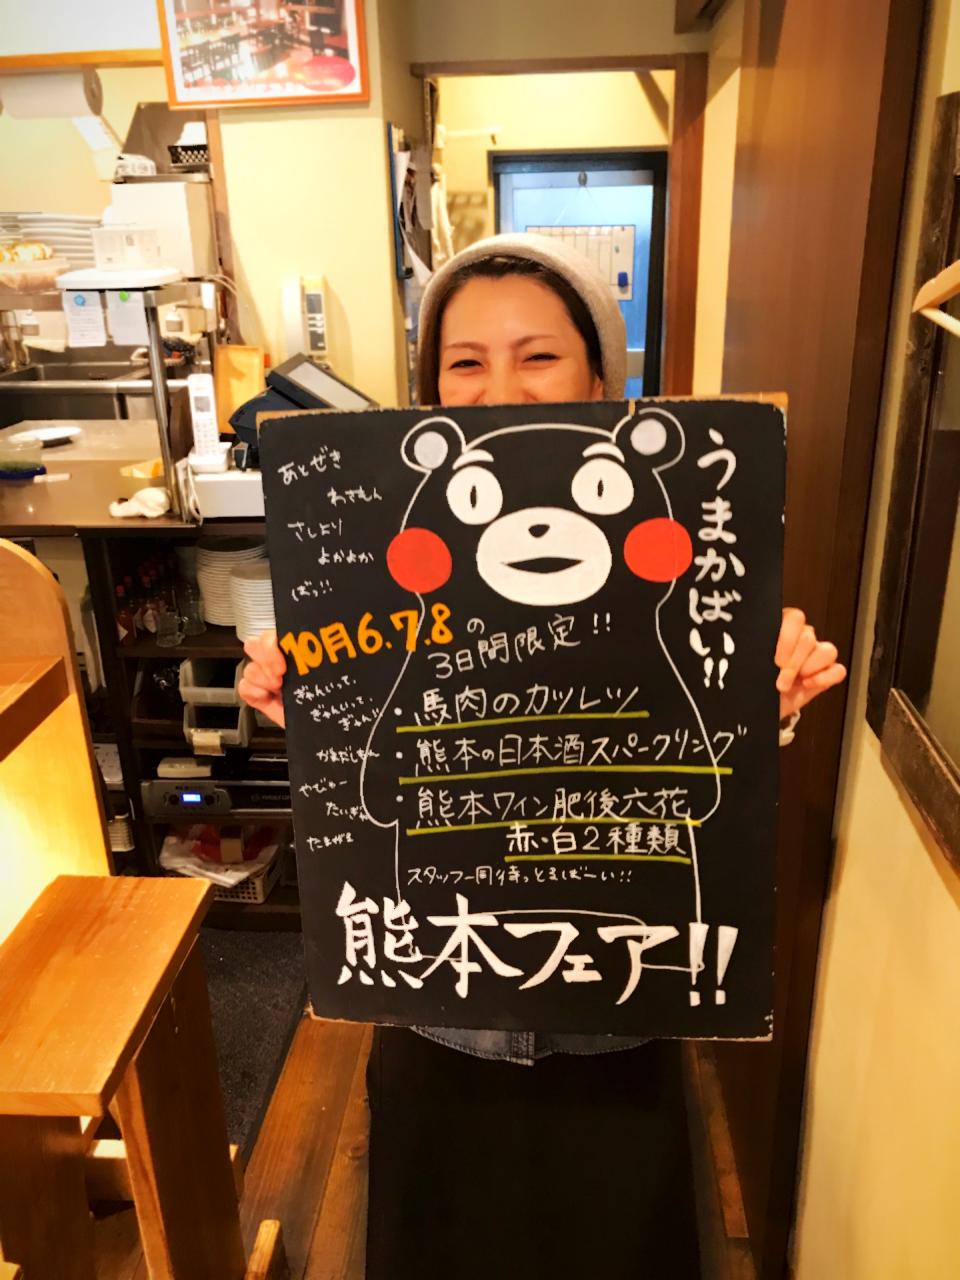 うまかばい!!
あとぜき
わさもん
さしより
よかよか
ばっ!!
10月6.7.8の
3日間限定!!
ぎゃんいって、
ぎゃんいって、
ぎゃん!
がまだしもん
やびゃー
たいぎゃ
たまがる
・馬肉のカツレツ
・熊本の日本酒スパークリング
・熊本ワイン肥後六花
赤・白2種類
スタッフ一同待っとるばーい!!
熊本フェアー!!